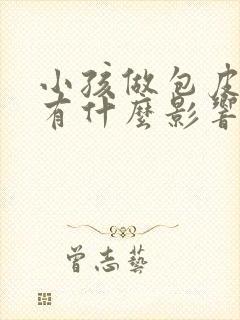 小孩做包皮
有什麼影響
曾志藝